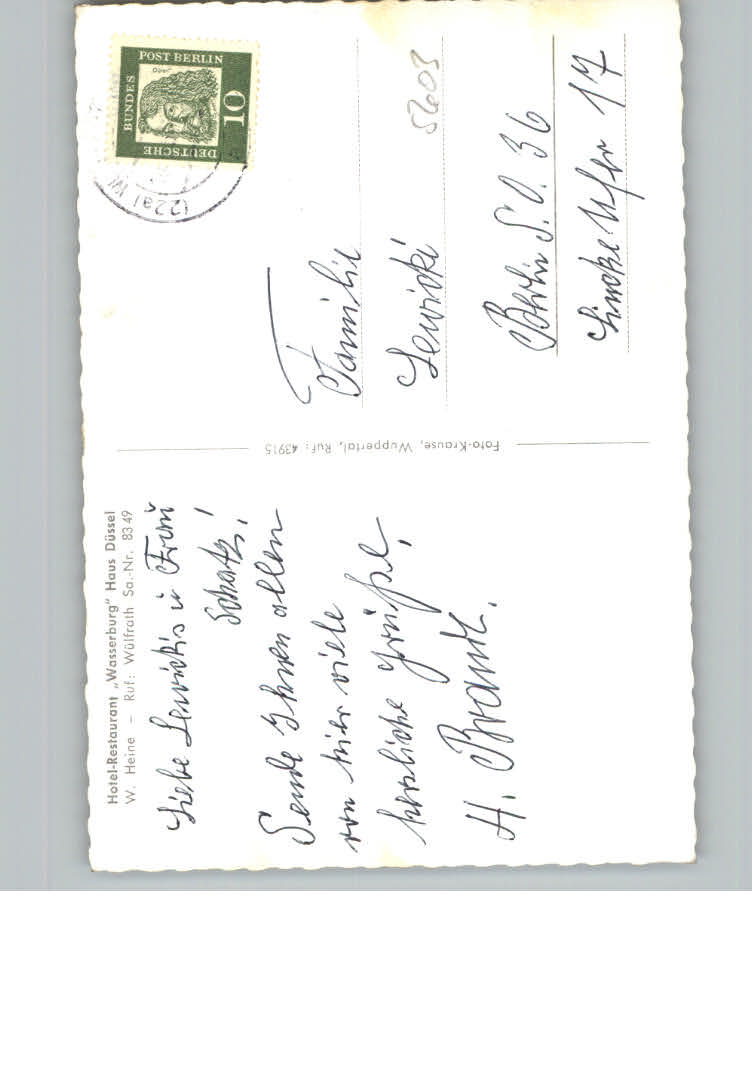 Hotel-Restaurant „Wasserburg" Haus Düssel
W. Heine – Ruf: Wülfrath Sa.-Nr. 8349
Liebe Lewickis u Frau
Schatz!
Sende Ihnen allen
von hier viele
herzliche Grüße,
H. Brandt.
Foto-Krause, Wuppertal, Ruf: 43915
DEUTSCHE BUNDES POST BERLIN
Dürer
10
(22a) W
5603
Familie
Lewicki
Berlin S.O. 36
Lincke Ufer 17